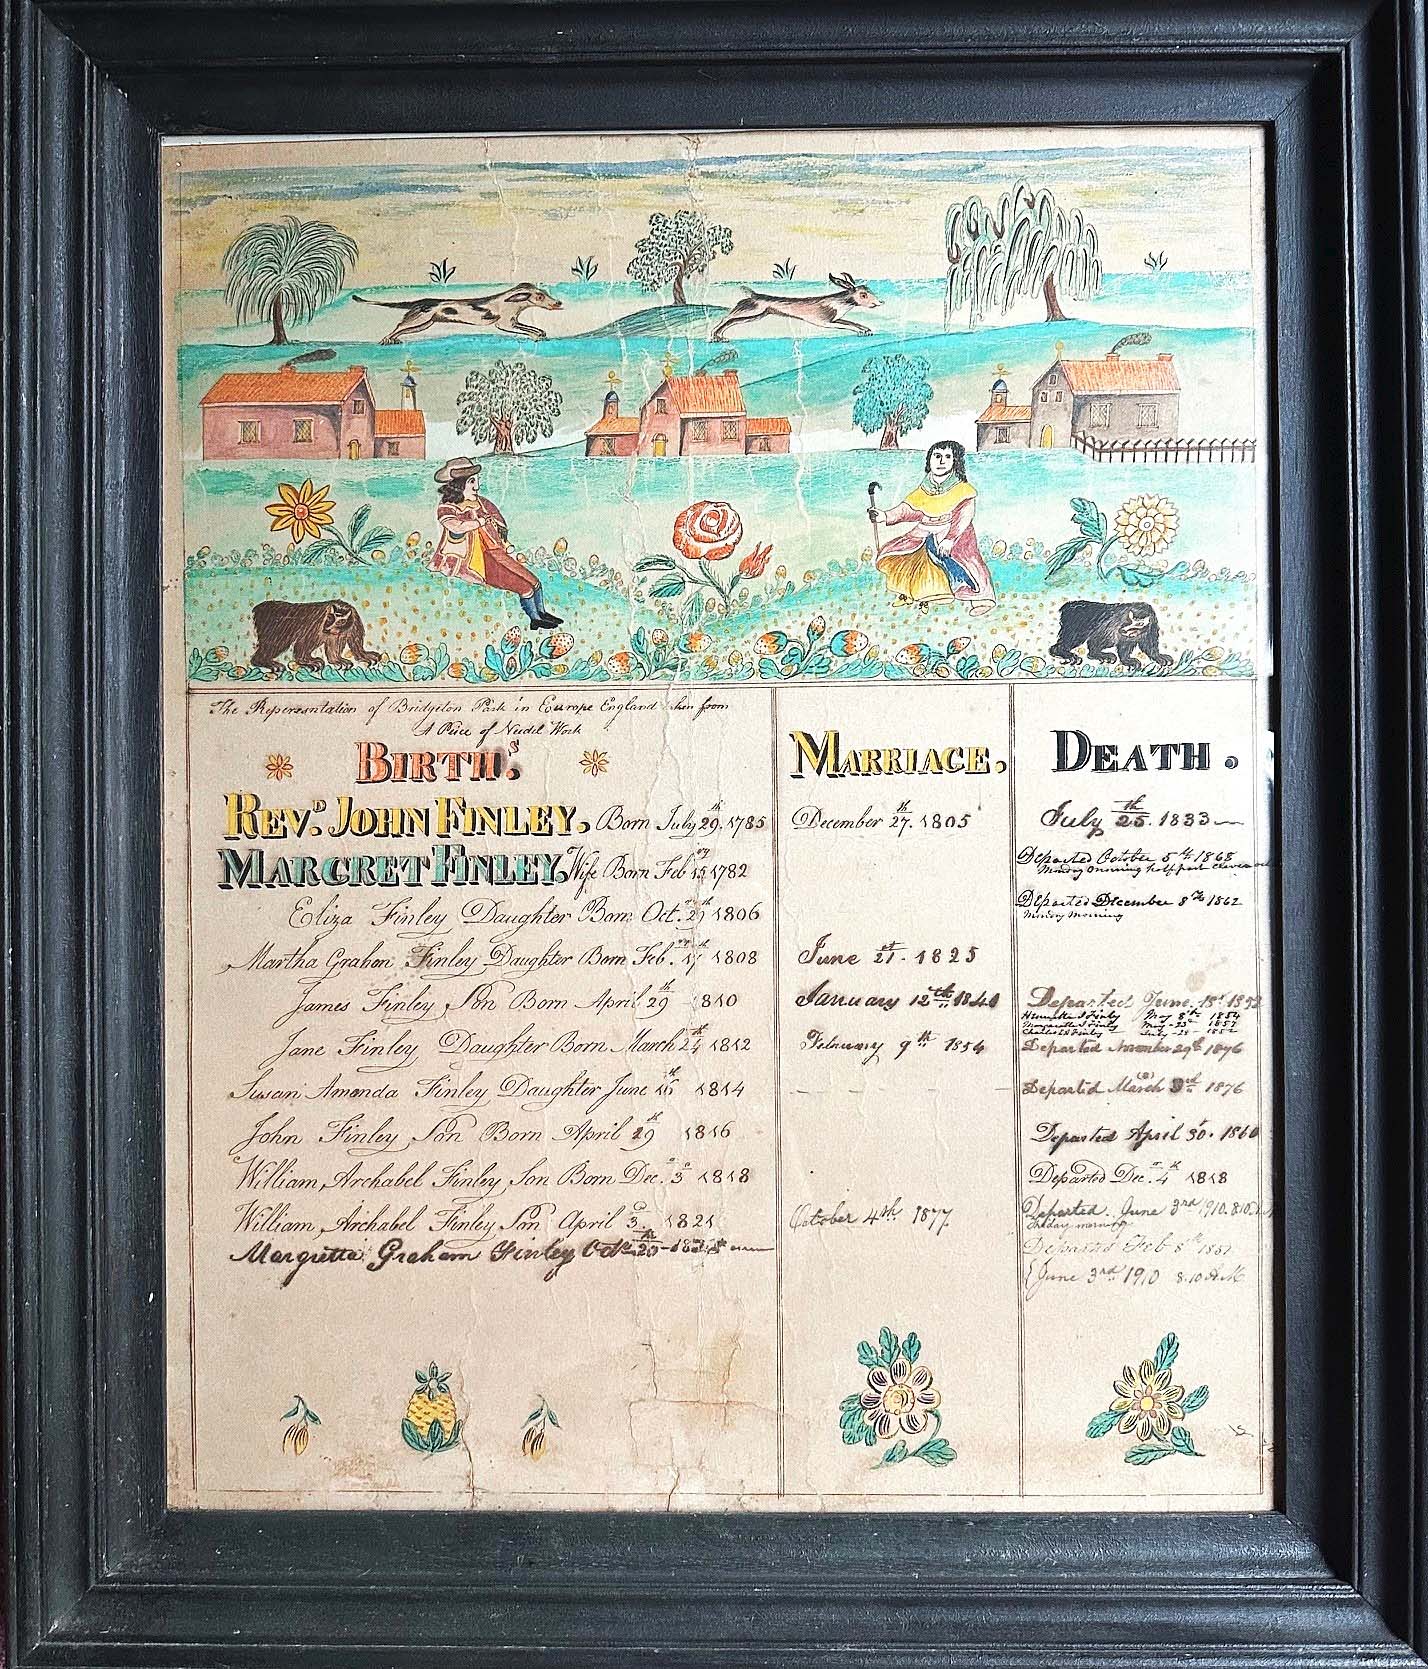 The Repersentation of Bridgeton Park in Europe England taken from
A Piece of Needel Work
BIRTH.s
REV.D JOHN FINLEY. Born July 29.th 1785
MARGRET FINLEY. Wife Born Feb 15 1782
Eliza Finley Daughter Born Oct. 1806
Martha Graham Finley Daughter Born Feb. 17 1808
James Finley Son Born April 29th 1810
Jane Finley Daughter Born March 24th 1812
Susan Amenda Finley Daughter June 1814
John Finley Son Born April 29th 1816
William, Archabel Finley Son Born Dec. 3 1818
William, Archabel Finley Son April 3. 1821
Margretta Graham Finley Oct 20th
MARRIAGE.
December 27.th 1805
June 21.st 1825
January 12th 1840
February 9th 1854
October 4th 1877
DEATH.
July 25.th 1833
Departed October 5th 1868
Monday morning half past eleven
Departed December 8th 1862
Monday Morning
Departed June. 18t
Finley May 8th 1854
Margaretta Finley May 23 1857
Charles Finley July
Departed November 29th 1876
Departed March 1876
Departed April 30. 1860
Departed Dec. 4th 1818
Departed. June 3rd 1910. 8:10
Friday morning
Departed Feb 8th
{ June 3rd 1910 8.10 A.M.